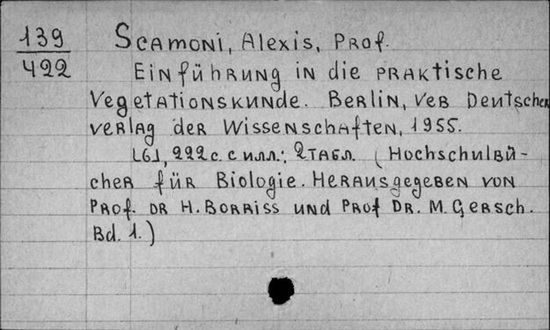 139
422
Scamoni, Alexis, Prof.
Einführung in die praktische
Vegetationskunde. Berlin, VEB Deutscher
Verlag der Wissenschaften, 1955.
222 с. с илл.; 2 табл. (Hochschulbü-
cher für Biologie. Herausgegeben von
Prof. Dr H. Borriss und Prof Dr. M. Gersch.
Bd. 1.)